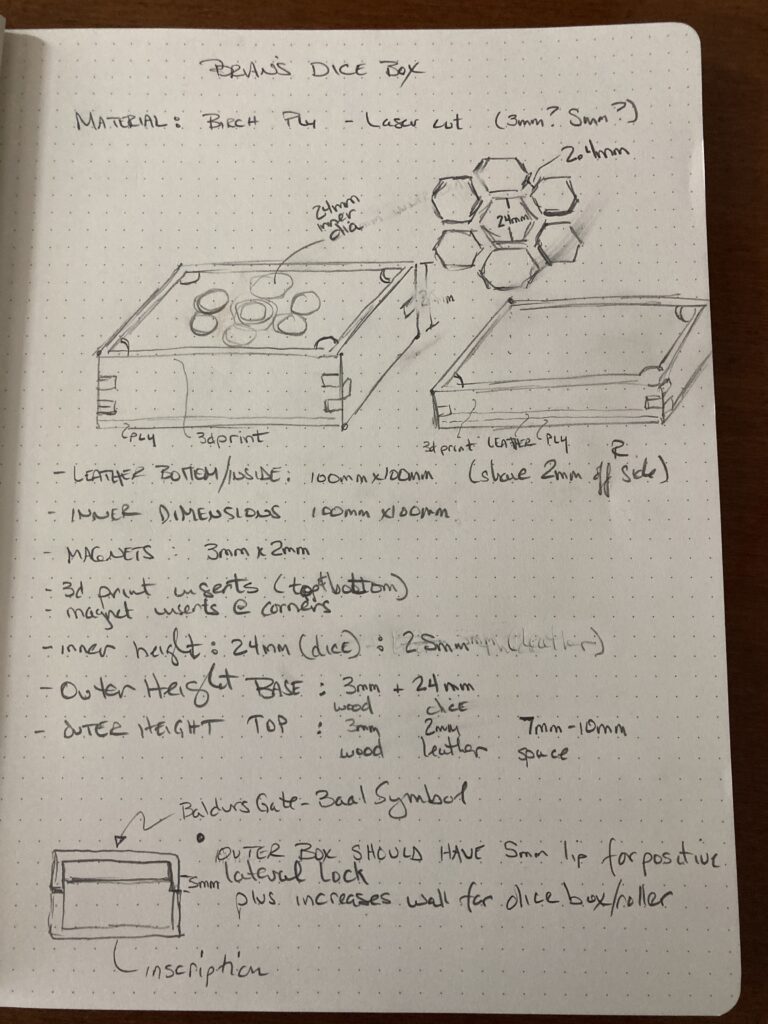 BRIAN'S DICE BOX
MATERIAL: BIRCH PLY - Laser cut (3mm? 5mm?)
2.4mm
24mm
24mm
inner
dia
mm
PLY
3dprint
3d print LEATHER PLY
- LEATHER BOTTEM/INSIDE: 100mm x 100mm (shave 2mm off R side)
- INNER DIMENSIONS 100mm x 100mm
- MAGNETS: 3mm x 2mm
- 3d print inserts (top+bottom)
- magnet inserts @ corners
- inner height: 24mm (dice) : 25mm (leather)
- Outer Height BASE : 3mm + 24mm
wood dice
- OUTER HEIGHT TOP : 3mm 2mm 7mm-10mm
wood leather space
Baldurs Gate - Baal Symbol
• OUTER BOX SHOULD HAVE 5mm lip for positive
lateral lock
5mm
plus increases wall for dice box/roller
inscription